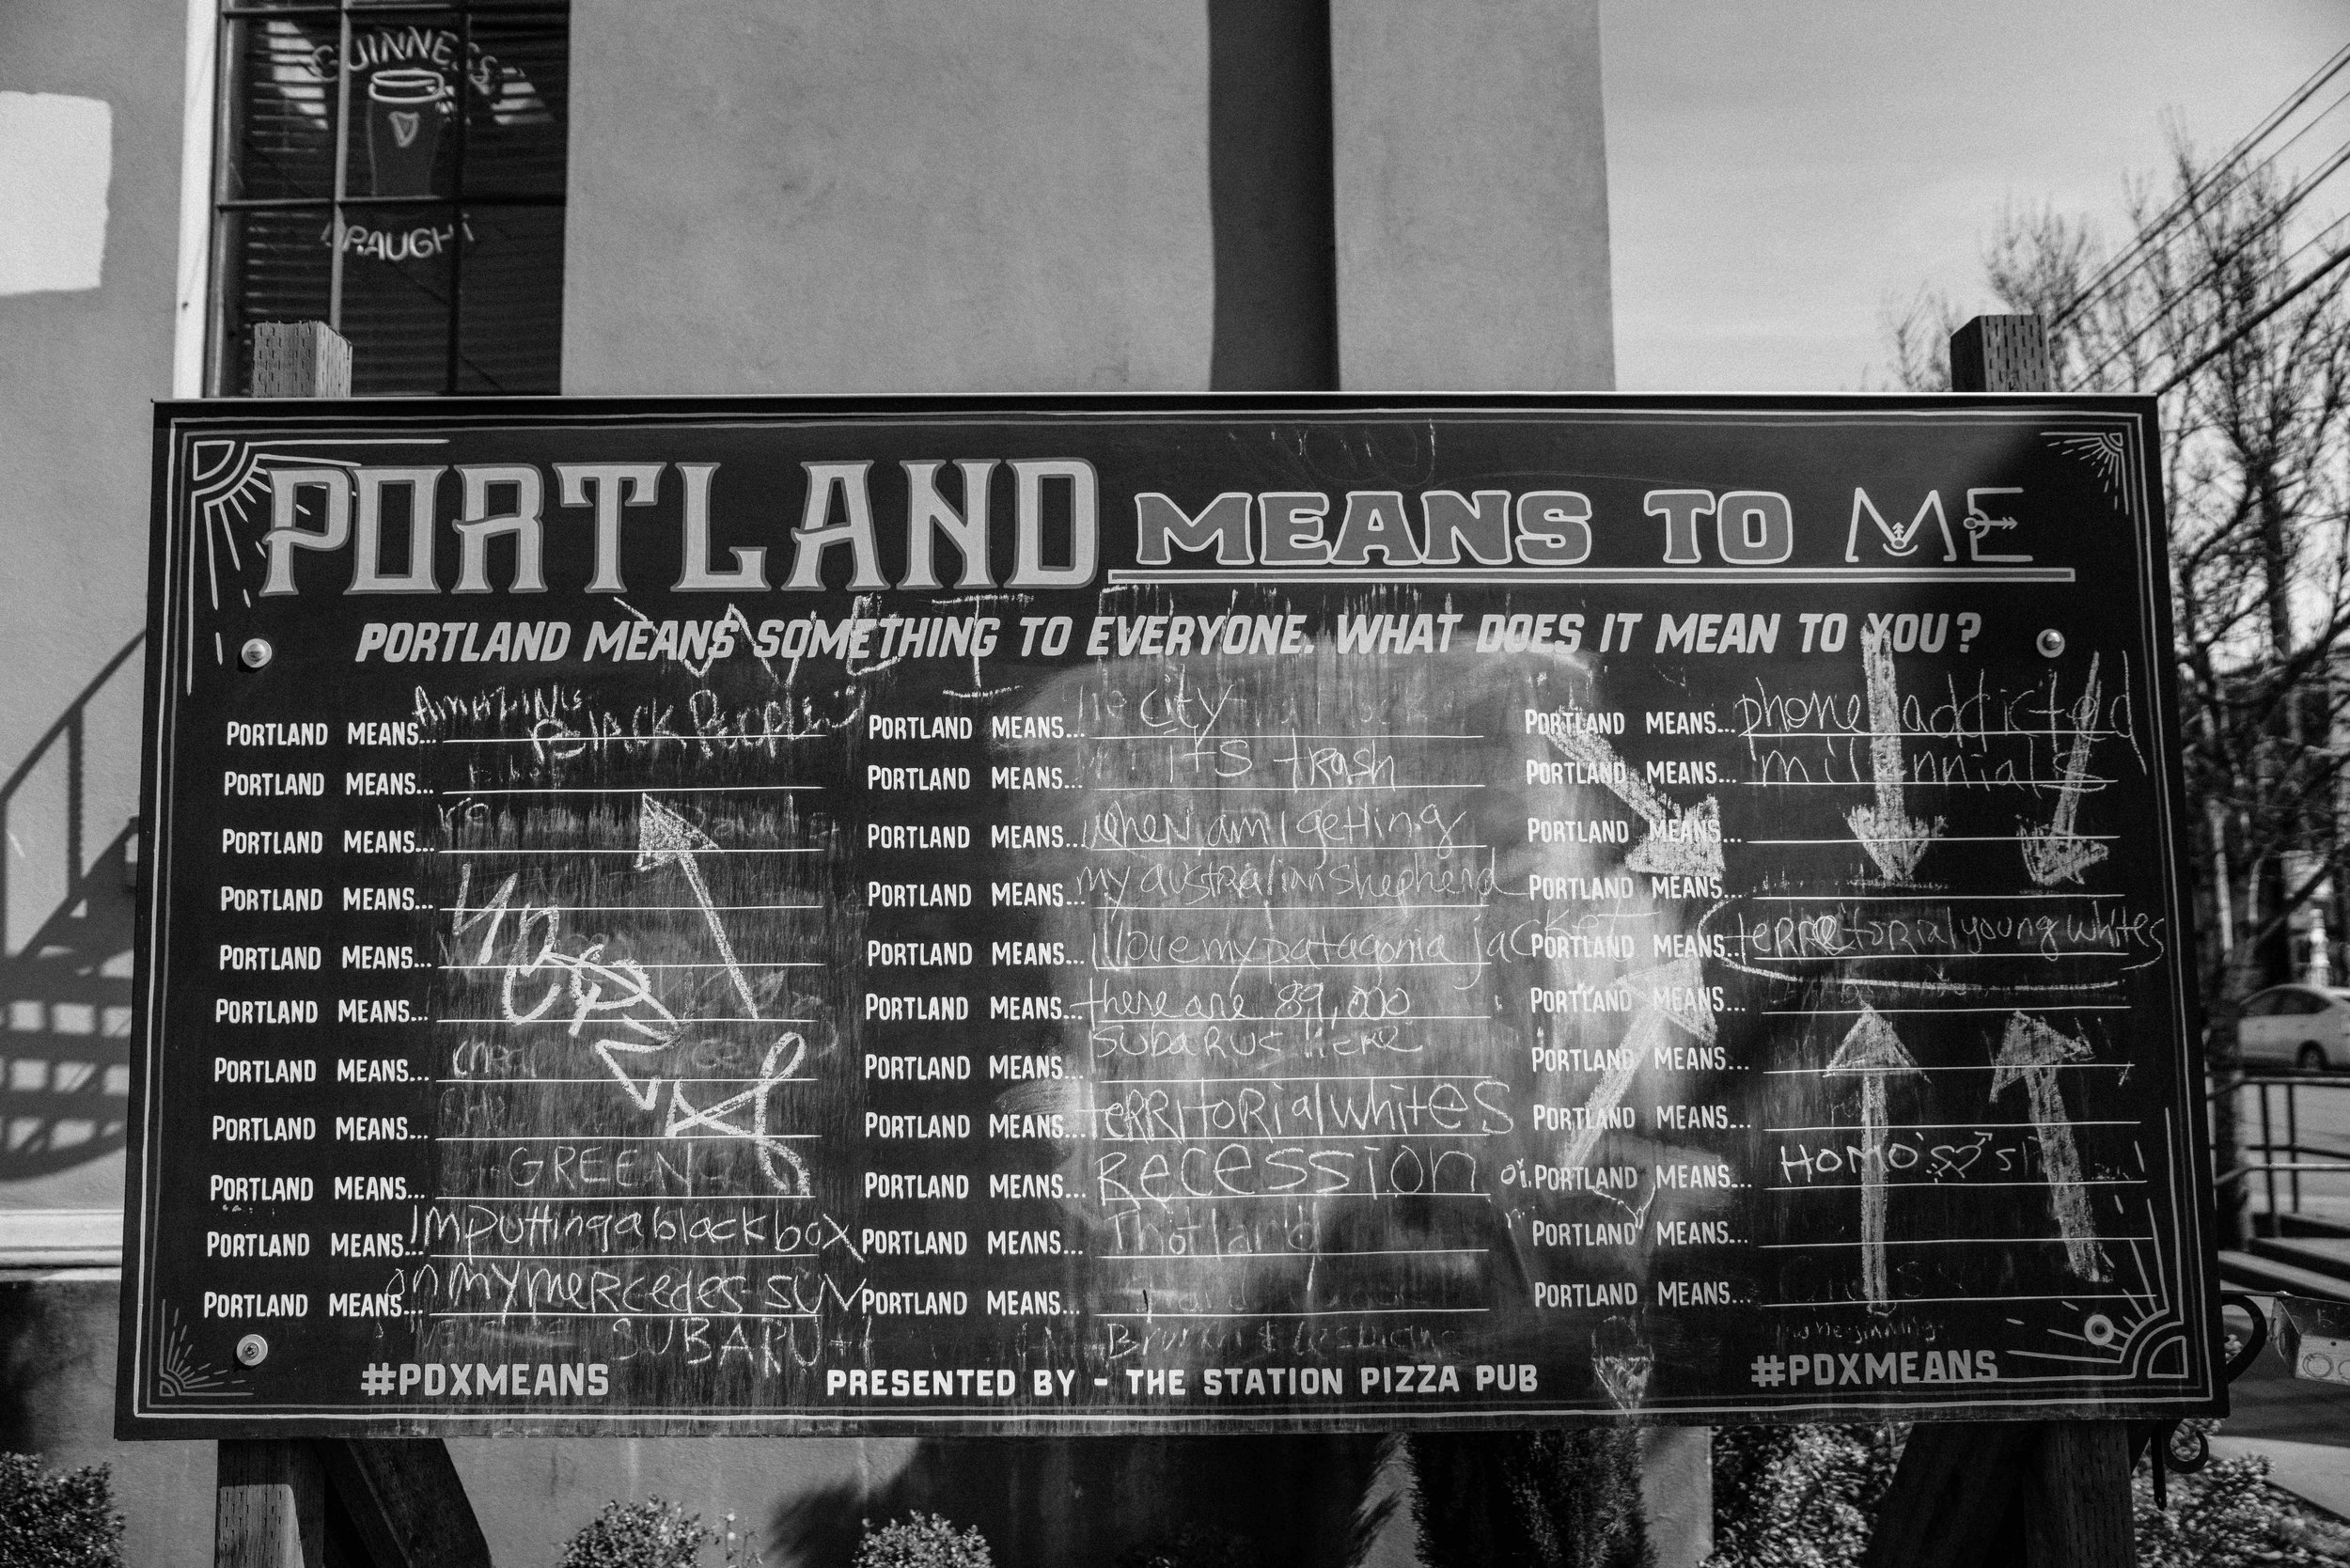 GUINNESS
DRAUGHT
PORTLAND MEANS TO ME
PORTLAND MEANS SOMETHING TO EVERYONE. WHAT DOES IT MEAN TO YOU?
PORTLAND MEANS... AMAZING BLACK People
PORTLAND MEANS...
PORTLAND MEANS...
PORTLAND MEANS...
PORTLAND MEANS...
PORTLAND MEANS...
PORTLAND MEANS...
PORTLAND MEANS...
PORTLAND MEANS... GREEN
PORTLAND MEANS... IMputtingablackbox
PORTLAND MEANS... onmymeRcedes suv
SUBARU
PORTLAND MEANS... city
PORTLAND MEANS... its trash
PORTLAND MEANS... when am I getting
PORTLAND MEANS... my australian shepherd
PORTLAND MEANS... I love my patagonia jacket
PORTLAND MEANS... there are 89,000
subaRus HeRe
PORTLAND MEANS...
PORTLAND MEANS... teRRItoRialwhites
PORTLAND MEANS... Recession
PORTLAND MEANS... Thotland
PORTLAND MEANS...
PORTLAND MEANS... phone addicted
PORTLAND MEANS... millennials
PORTLAND MEANS...
PORTLAND MEANS...
PORTLAND MEANS... teRRitoRial young whites
PORTLAND MEANS...
PORTLAND MEANS...
PORTLAND MEANS...
PORTLAND MEANS... HOMO'S
PORTLAND MEANS...
PORTLAND MEANS...
#PDXMEANS
PRESENTED BY - THE STATION PIZZA PUB
#PDXMEANS